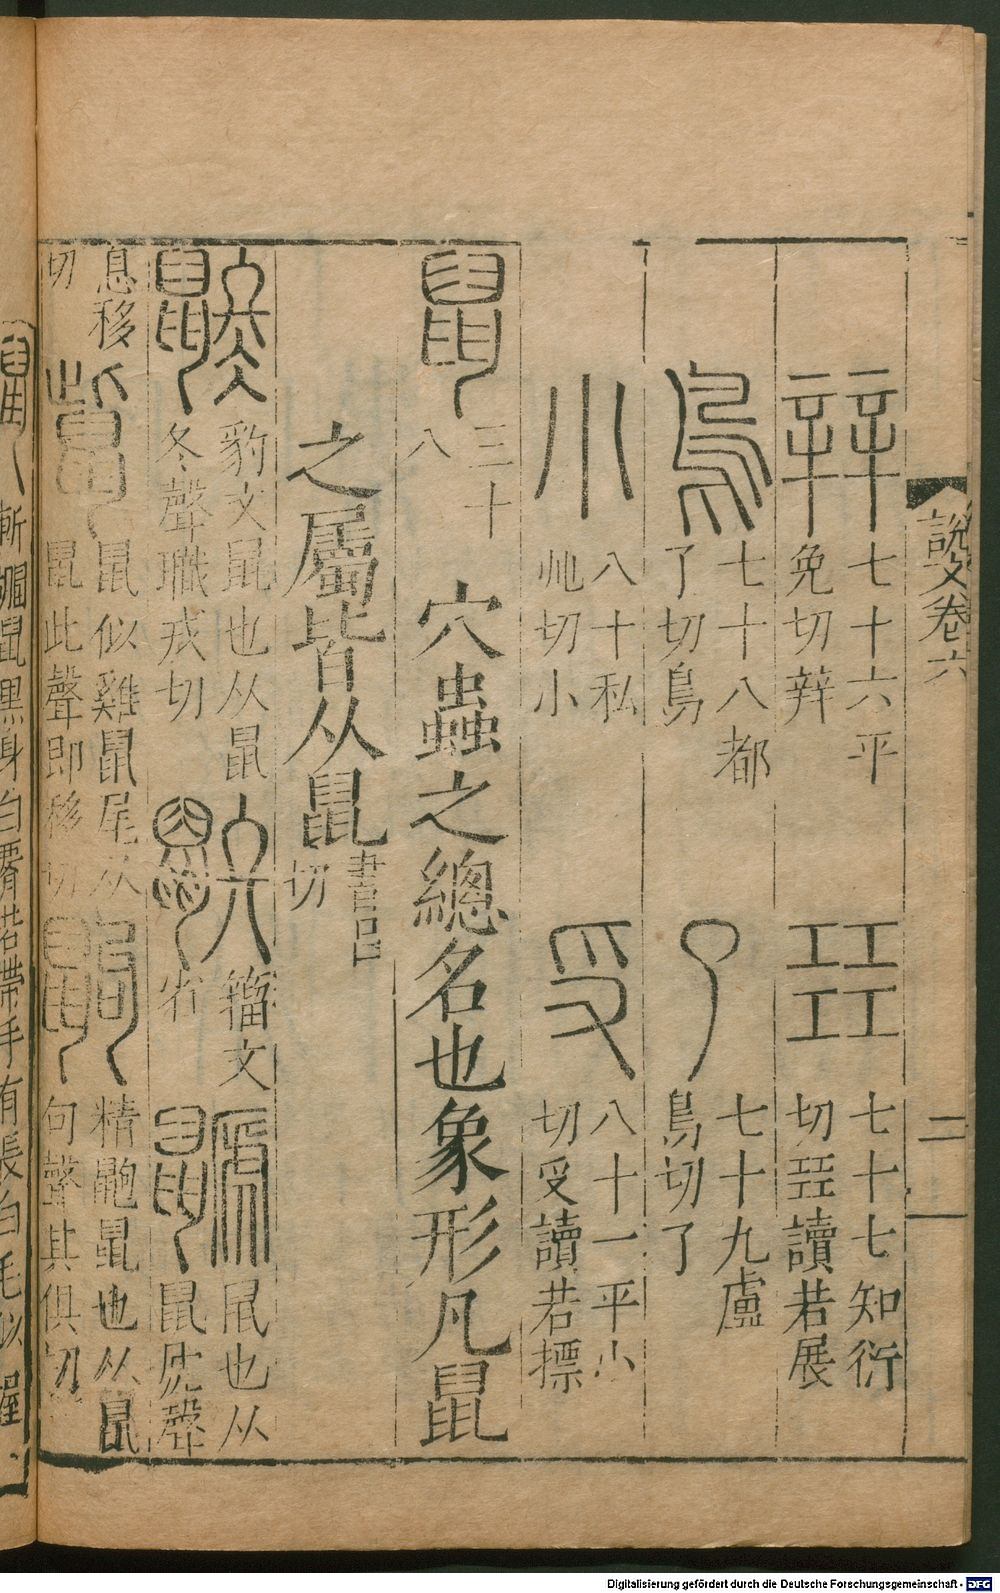 說文卷六
二
辡
七十六平
免切辡
㠭
七十七知衍
切㠭讀若展
鳥
七十八都
了切鳥
了
七十九盧
鳥切了
小
八十私
兆切小
𠬪
八十一平小
切𠬪讀若摽
鼠
三十
八
穴蟲之總名也象形凡鼠
之屬皆从鼠
書呂
切
豹文鼠也从鼠
冬聲職戎切
籀文
省
鼠也从
鼠虒聲
息移
切
鼠似雞鼠尾从
鼠此聲即移切
精鼩鼠也从鼠
句聲其俱切
斬䶉鼠黑身白腰若帶手有長白毛似握
Digitalisierung gefördert durch die Deutsche Forschungsgemeinschaft - DFG